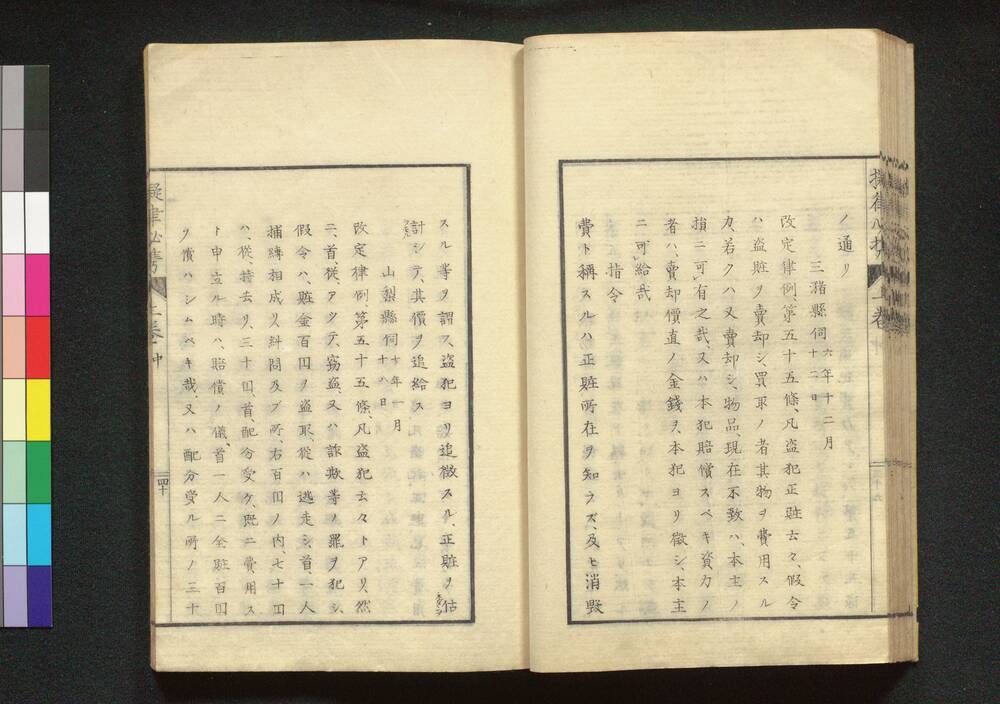 ノ通リ
三潴縣伺 六年十二月
十二日
改定律例、第五十五條、凡盗犯正贓云々、假令
ハ盗贓ヲ賣却シ、買取ノ者其物ヲ費用スル
カ、若クハ又賣却シ、物品、現在不致ハ、本主ノ
損ニ可有之哉、又ハ本犯賠償スベキ資力ノ
者ハ、賣却價直ノ金錢ヲ本犯ヨリ徴シ、本主
ニ可給哉
指令
費ト稱スルハ正贓所在ヲ知ラズ、及ヒ消毀
スル等ヲ謂フ、盗犯ヨリ追徴スル、正贓ヲ估
計シテ、其價ヲ追給ス
山梨縣伺 十年一月
十八日
改定律例、第五十五條、凡盗犯云々トアリ、然
ニ、首、從、アツテ、竊盗、又ハ詐欺等ノ罪ヲ犯シ、
假令ハ、贓金百円ヲ盗取、從ハ逃走シ、首、一人
捕縛相成リ糾問及ブ所、右百円ノ内、七十円
ハ、從、持去リ、三十円、首、配分受ケ、既ニ費用ス
ト申立ル時ハ、賠償ノ儀、首一人ニ全贓百円
ヲ償ハシムベキ哉、又ハ配分受ル所ノ三十
擬律必携
上巻
四十